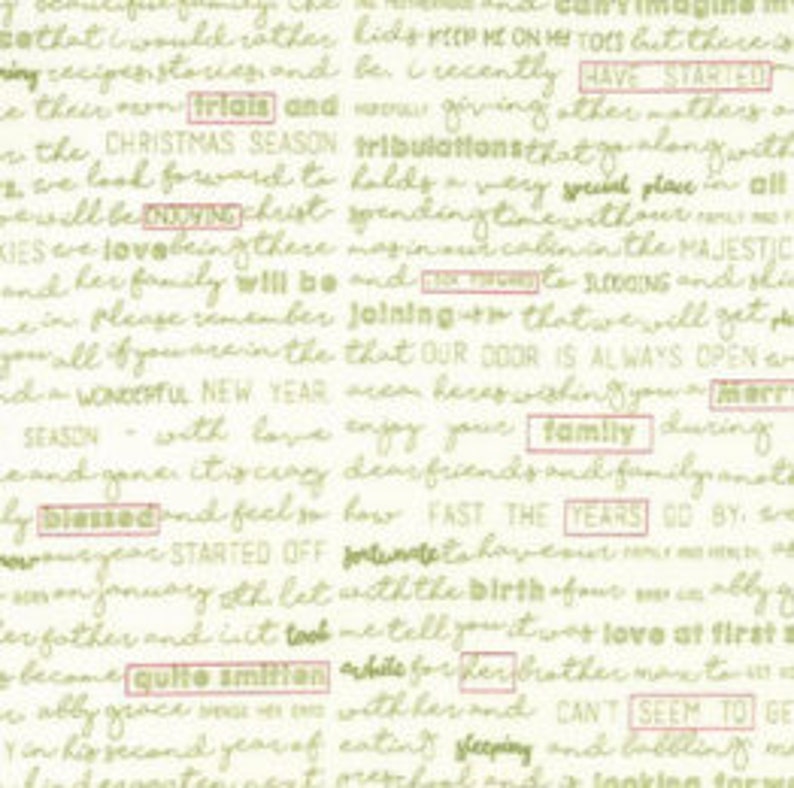 beautiful family. the
can't imagine m
that i would rather kids KEEP ME ON MY TOES but there is
recipes, stories, and be. i recently HAVE STARTED
their own trials and HOPEFULLY giving other mothers
the CHRISTMAS SEASON tribulations that go along with
we look forward to holds a very special place in all
we will be ENJOYING christ spending time with our FAMILY AND F
KIES we love being there mas in our cabin in the MAJESTIC
and her family will be and LOOK FORWARD to SLEDDING and ski
me in. please remember joining us that we will get
you all if you are in the that OUR DOOR IS ALWAYS OPEN
WONDERFUL NEW YEAR area. heres wishing you a merr
SEASON - with love enjoy your family during
and gone. it is crazy dear friends and family, anoth
ly blessed and feel so how FAST THE YEARS GO BY.
our year STARTED OFF fortunate to have our FAMILY AND HEALTH.
on january 8th. let with the birth of our BABY GIRL abby g
her father and i. it took me tell you it was love at first s
become quite smitten while for her brother max to GET
abby grace THINGS HER OWN with her and CAN'T SEEM TO GE
Y in his second year of eating sleeping and babbling
kindergarten next preschool and is looking forw